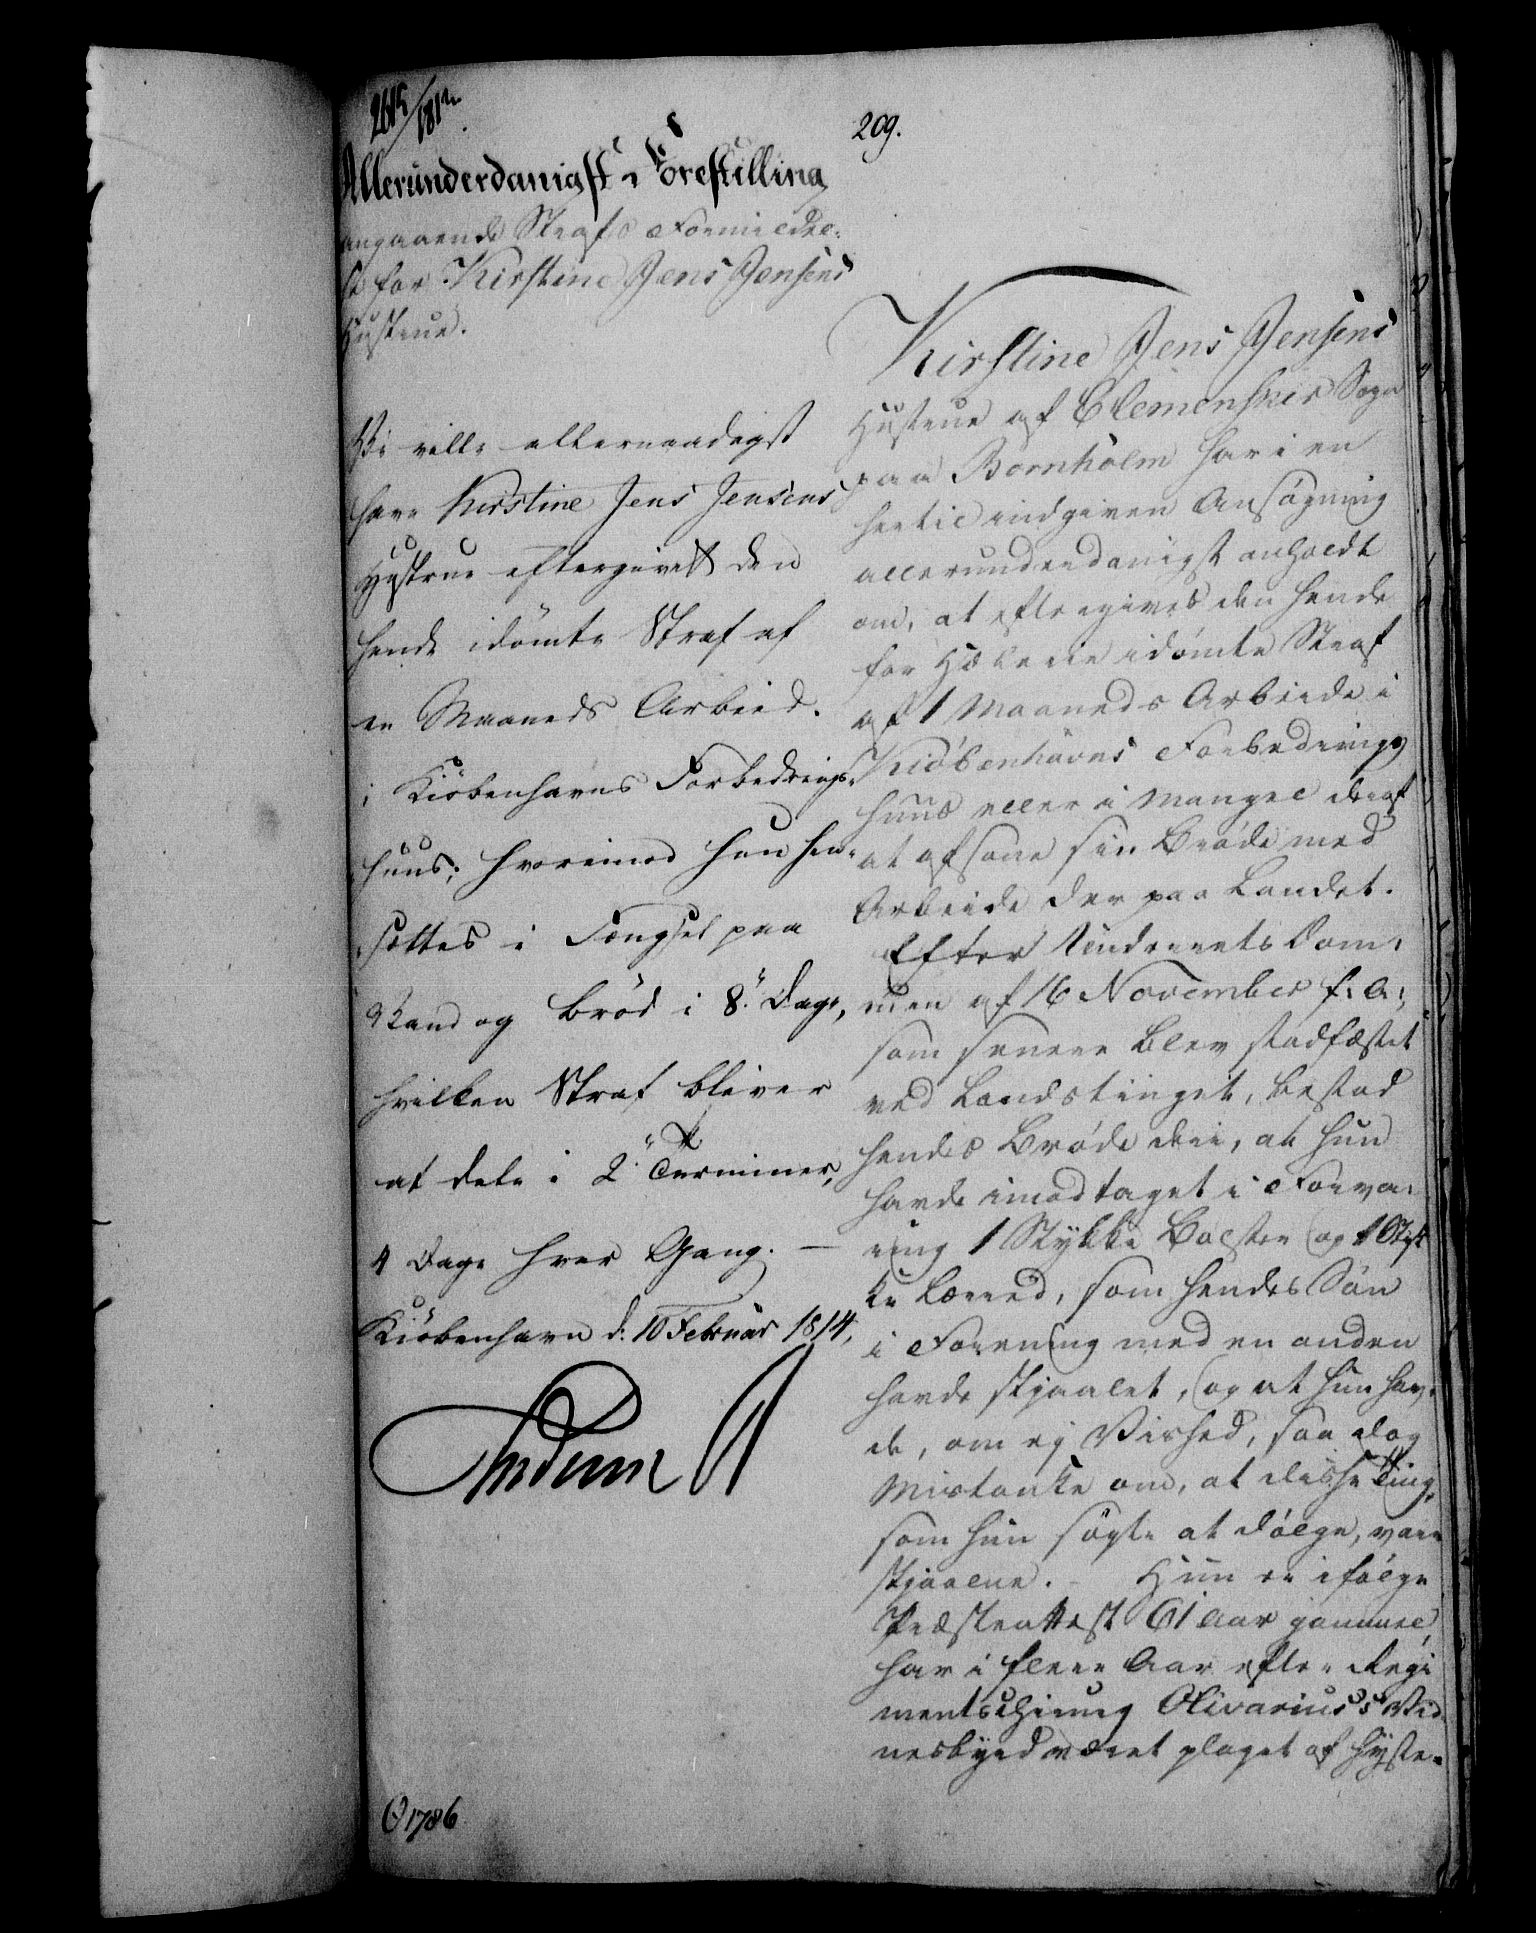 2615/181
209.
Allerunderdanigst Forestilling
angaaende Strafs Formildel-
se for Kirstine Jens Jensens
Hustrue.
Vi ville allernaadigst
have Kirstine Jens Jensens
Hustrue eftergivet den
hende idømte Straf af
en Maaneds Arbeid
i Kiøbenhavns Forbedrings-
huus; hvorimod hun hen-
sættes i Fængsel paa
Vand og Brød i 8 Dage,
hvilken Straf bliver
at dele i 2 Terminer,
4 Dage hver Gang. —
Kiøbenhavn d: 10 Februar 1814,
Frederik R
Kirstine Jens Jensens
Hustrue af Clemensker Sogn
paa Bornholm har i en
hertil indgiven Ansøgning
allerunderdanigst anholdt
om, at eftergives den hende
for Hælerie idømte Straf
af 1 Maaneds Arbeide i
Kiøbenhavns Forbedrings
huus eller i Mangel deraf
at afsone sin Brøde med
Arbeide der paa Landet.
Efter Underrets Dom-
men af 16 November f: A:,
som senere blev stadfæstet
ved Landstinget, bestod
hendes Brøde deri, at hun
havde imodtaget i Forva-
ring 1 Stykke Bolster og 1 Styk
ke Lærred, som hendes Søn
i Forening med en anden
havde stjaalet, og at hun hav-
de, om ej Vished, saa dog
Mistanke om, at disse Ting,
som hun søgte at dølge, vare
stjaalne. – Hun er ifølge
Præsteattest 61 Aar gammel,
har i flere Aar efter Regi
mentschirurg Olivarius's Vid
nesbyrd været plaget af hyste-
O 1786